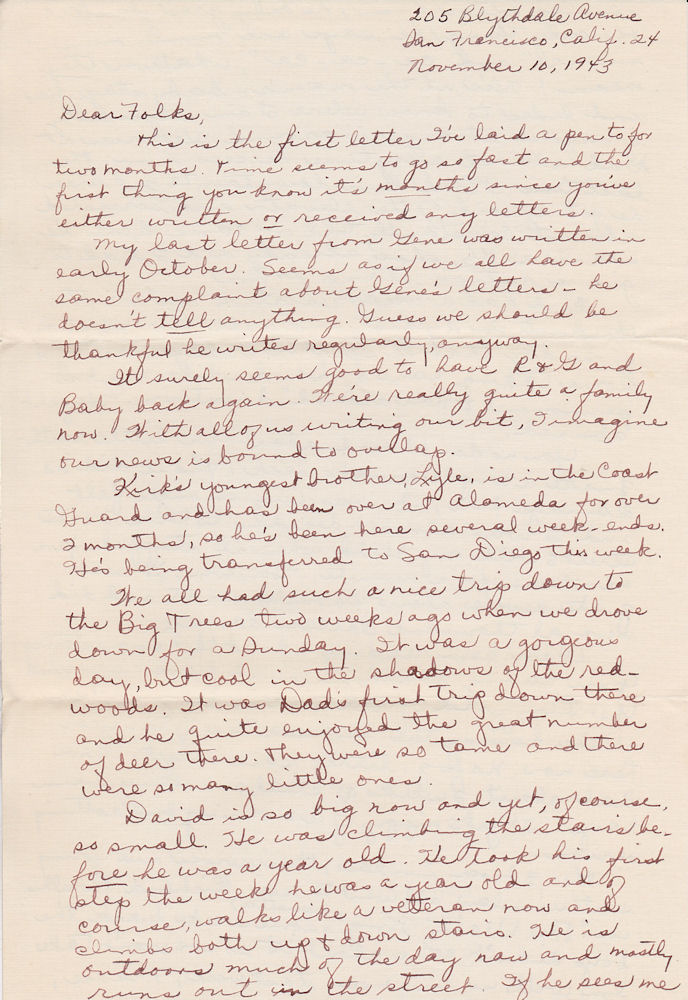 205 Blythdale Avenue
San Francisco, Calif. 24
November 10, 1943
Dear Folks,
This is the first letter I've laid a pen to for
two months. Time seems to go so fast and the
first thing you know it's months since you've
either written or received any letters.
My last letter from Gene was written in
early October. Seems as if we all have the
same complaint about Gene's letters - he
doesn't tell anything. Guess we should be
thankful he writes regularly, anyway.
It surely seems good to have R & G and
Baby back again. We're really quite a family
now. With all of us writing our bit, I imagine
our news is bound to overlap.
Kirk's youngest brother, Lyle, is in the Coast
Guard and has been over at Alameda for over
2 months, so he's been here several week-ends.
He's being transferred to San Diego this week.
We all had such a nice trip down to
the Big Trees two weeks ago when we drove
down for a Sunday. It was a gorgeous
day, but cool in the shadows of the red-
woods. It was Dad's first trip down there
and he quite enjoyed the great number
of deer there. They were so tame and there
were so many little ones.
David is so big now and yet, of course,
so small. He was climbing the stairs be-
fore he was a year old. He took his first
step the week he was a year old and of
course, walks like a veteran now and
climbs both up & down stairs. He is
outdoors much of the day now and mostly
runs out in the street. If he sees me